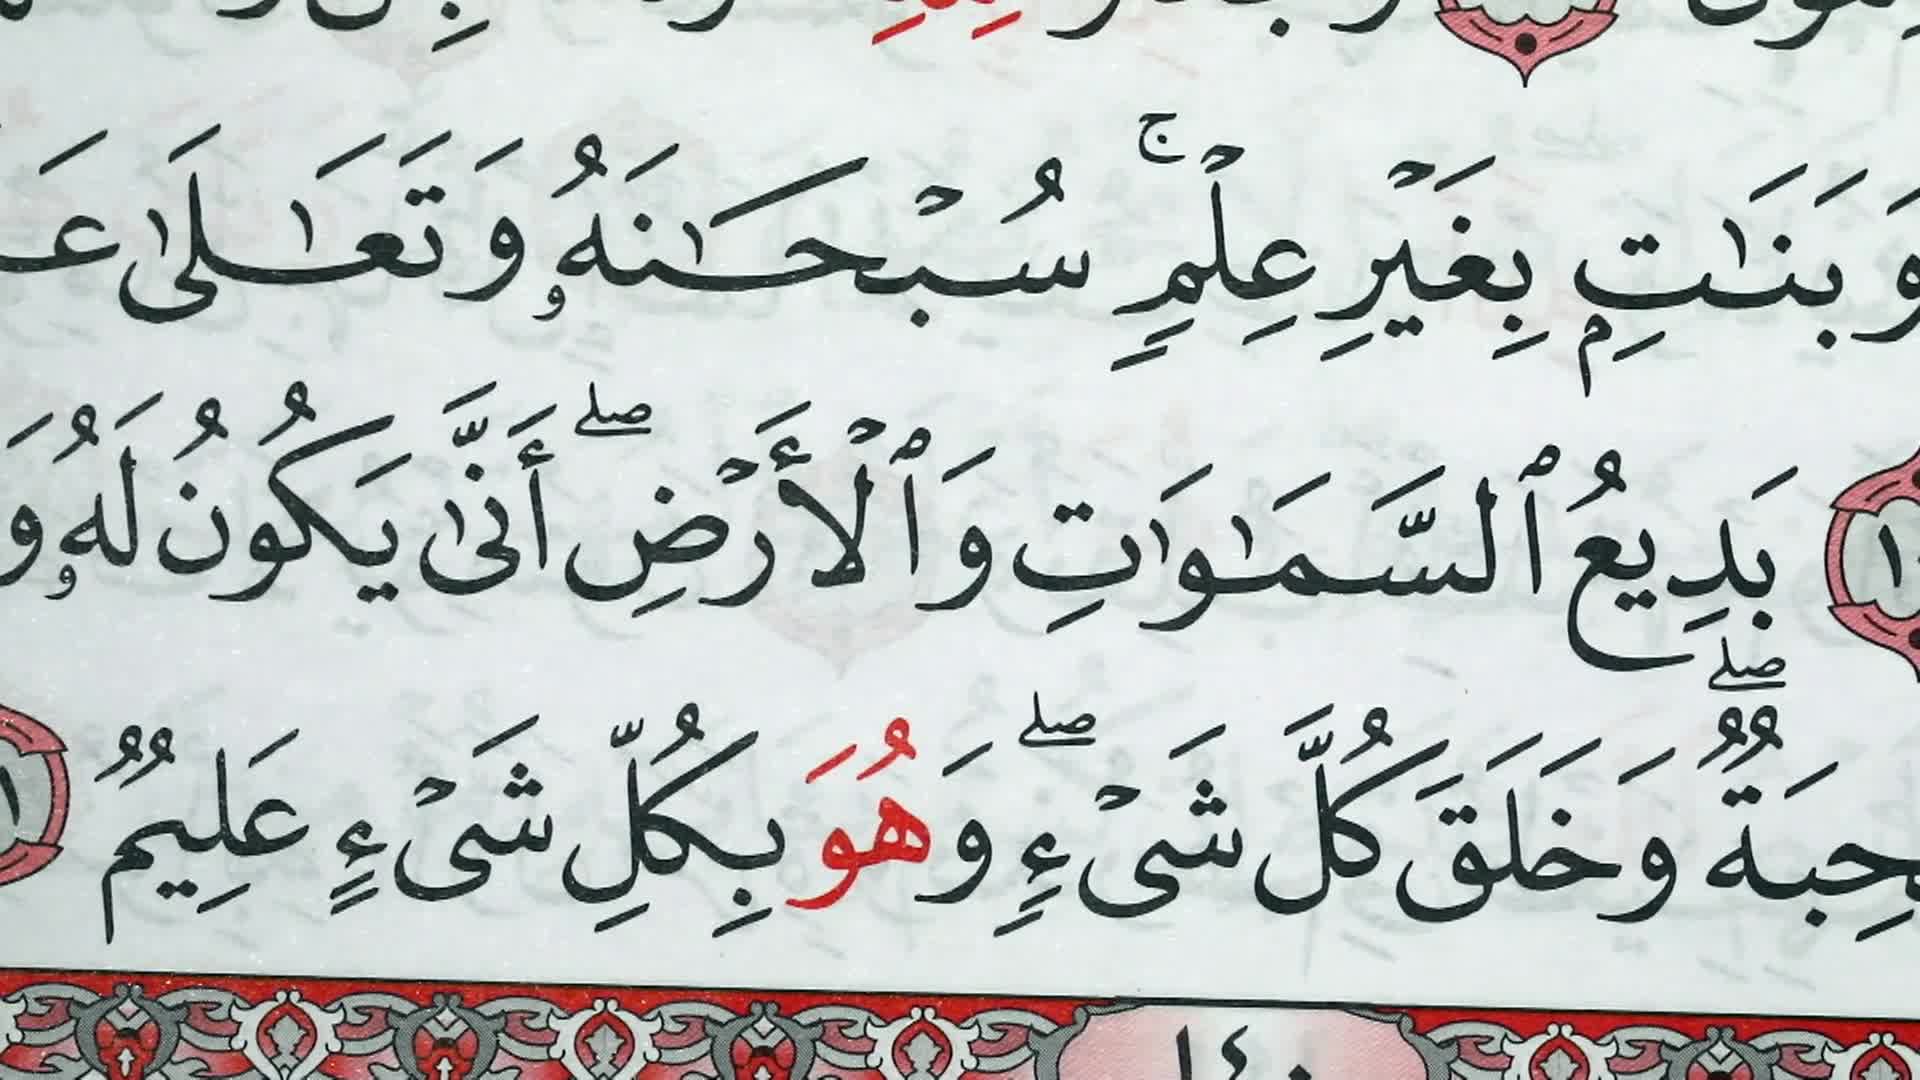 وَبَنَٰتِۭ بِغَيۡرِ عِلۡمٖۚ سُبۡحَٰنَهُۥ وَتَعَٰلَىٰ
بَدِيعُ ٱلسَّمَٰوَٰتِ وَٱلۡأَرۡضِۖ أَنَّىٰ يَكُونُ لَهُۥ
وَخَلَقَ كُلَّ شَيۡءٖۖ وَهُوَ بِكُلِّ شَيۡءٍ عَلِيمٞ
١٤٠